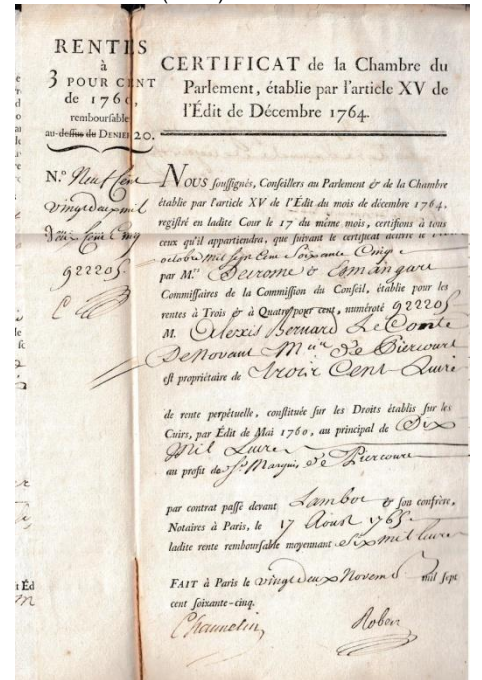 RENTES
à
3 POUR CENT
de 1760,
remboursable
au-dessus du DENIER 20.
CERTIFICAT de la Chambre du
Parlement, établie par l'article XV de
l'Édit de Décembre 1764.
N.º Neuf Cent
vingt deux mil
Deux Cent Cinq
922205
NOUS soussignés, Conseillers au Parlement & de la Chambre
établie par l'article XV de l'Édit du mois de décembre 1764.
registré en ladite Cour le 17 du même mois, certifions à tous
ceux qu'il appartiendra, que suivant le certificat
octobre mil Sept Cent Soixante Cinq
par M.rs
Commissaires de la Commission du Conseil, établie pour les
rentes à Trois & à Quatre pour cent, numéroté 922205
M. Alexis Bernard Le Conte
DeNovant M.is De Piercourt
est propriétaire de Trois Cent Livres
de rente perpétuelle, constituée sur les Droits établis sur les
Cuirs, par Édit de Mai 1760, au principal de Dix
Mil Livres
au profit de Sr Marquis de Piercourt
par contrat passé devant Lambot & son confrère,
Notaires à Paris, le 17 Aoust 1765
ladite rente remboursable moyennant Six mil livres
FAIT à Paris le vingt deux Novemb mil sept
cent soixante-cinq.
Chauvelin Robert